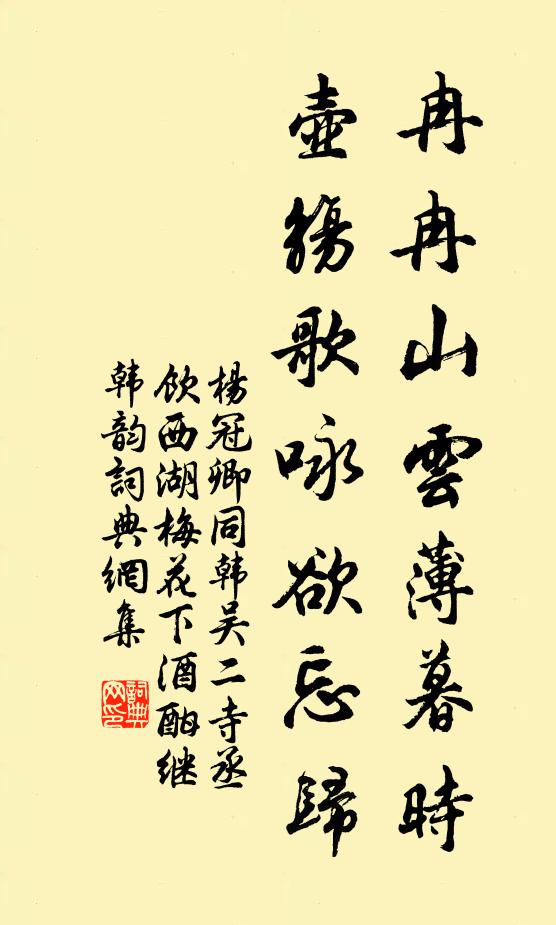 冉冉山雲薄暮時
壺觴歌咏欲忘歸
楊冠卿同韩吴二寺丞
饮西湖梅花下酒酣继
韩韵詞典網集
詞典
网印